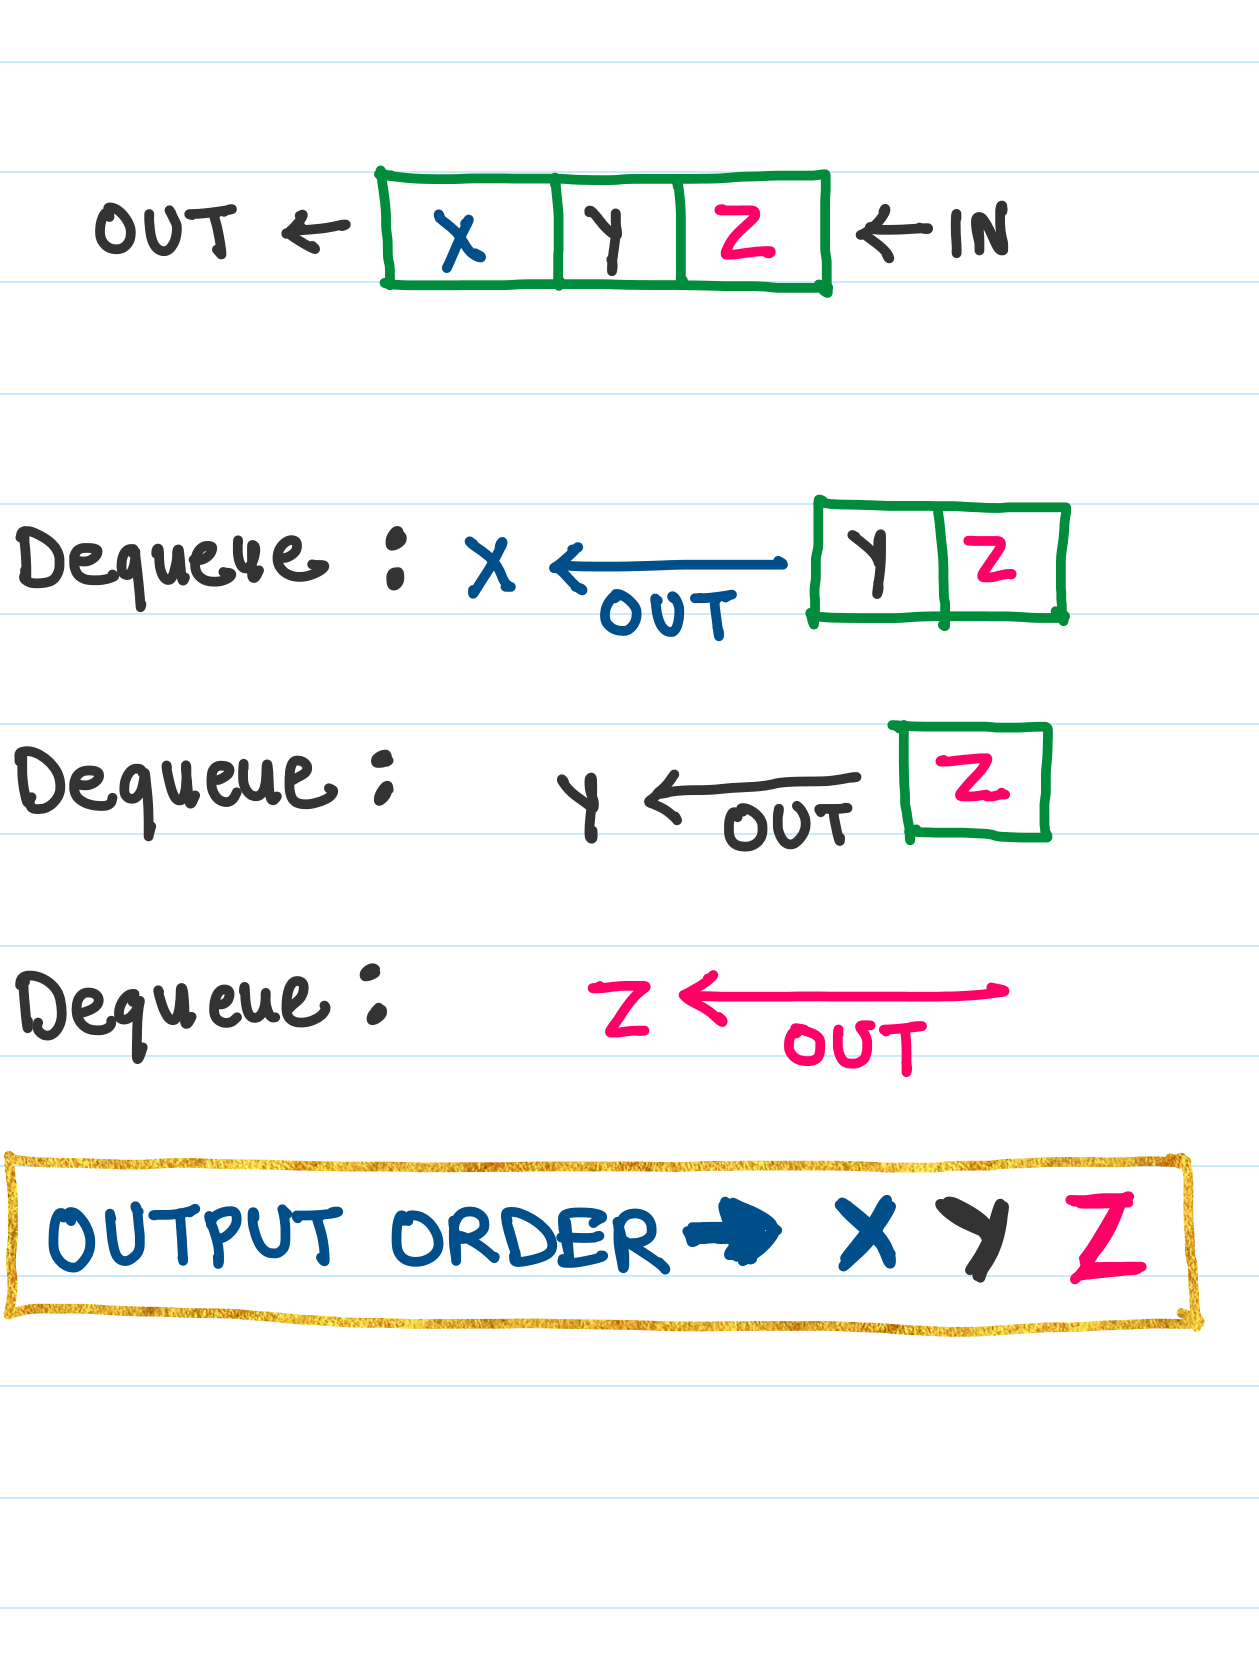 OUT ← X Y Z ← IN
Dequeue : X ← Y Z
OUT
Dequeue : Y ← Z
OUT
Dequeue : Z ←
OUT
OUTPUT ORDER → X Y Z